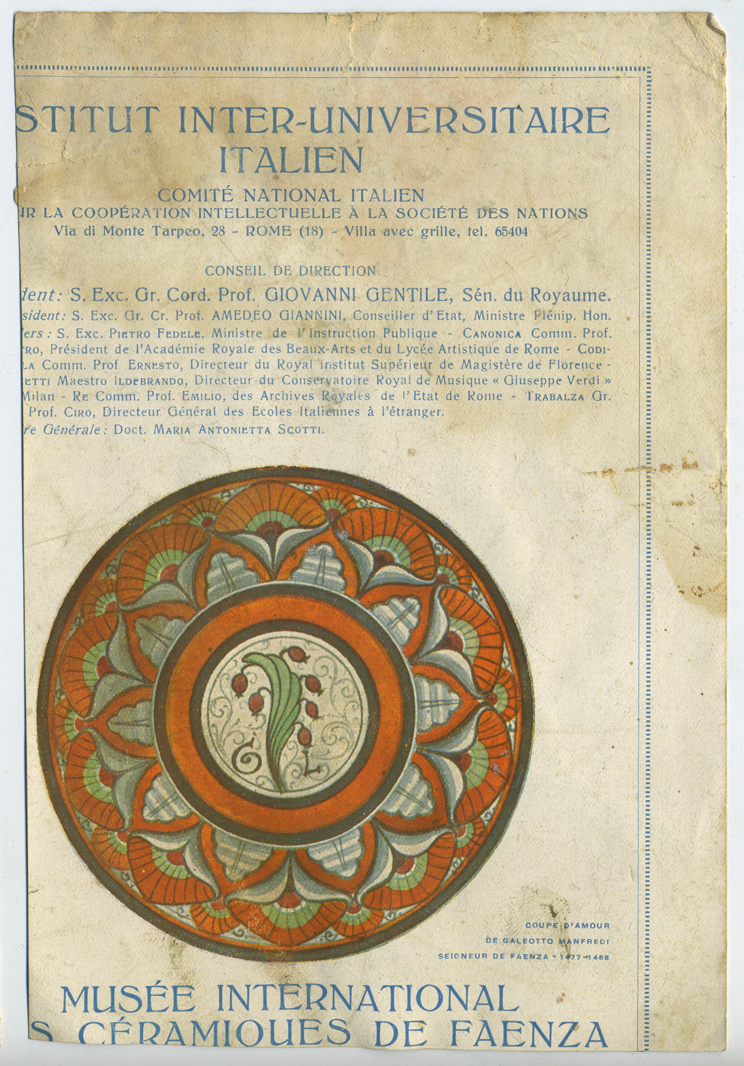 STITUT INTER-UNIVERSITAIRE
ITALIEN
COMITÉ NATIONAL ITALIEN
UR LA COOPÉRATION INTELLECTUELLE À LA SOCIÉTÉ DES NATIONS
Via di Monte Tarpeo, 28 - ROME (18) - Villa avec grille, tel. 65404
CONSEIL DE DIRECTION
dent: S. Exc. Gr. Cord. Prof. GIOVANNI GENTILE, Sén. du Royaume.
sident: S. Exc. Gr. Cr. Prof. AMEDEO GIANNINI, Conseiller d'Etat, Ministre Plénip. Hon.
ers: S. Exc. PIETRO FEDELE, Ministre de l'Instruction Publique - CANONICA Comm. Prof.
RO, Président de l'Académie Royale des Beaux-Arts et du Lycée Artistique de Rome - CODI-
LA Comm. Prof ERNESTO, Directeur du Royal Institut Supérieur de Magistère de Florence -
ETTI Maestro ILDEBRANDO, Directeur du Conservatoire Royal de Musique « Giuseppe Verdi »
Milan - RE Comm. Prof. EMILIO, des Archives Royales de l'Etat de Rome - TRABALZA Gr.
Prof. CIRO, Directeur Général des Ecoles Italiennes à l'étranger.
re Générale: Doct. MARIA ANTONIETTA SCOTTI.
G L
COUPE D'AMOUR
DE GALEOTTO MANFREDI
SEIGNEUR DE FAENZA - 1477-1488
MUSÉE INTERNATIONAL
S CÉRAMIQUES DE FAENZA